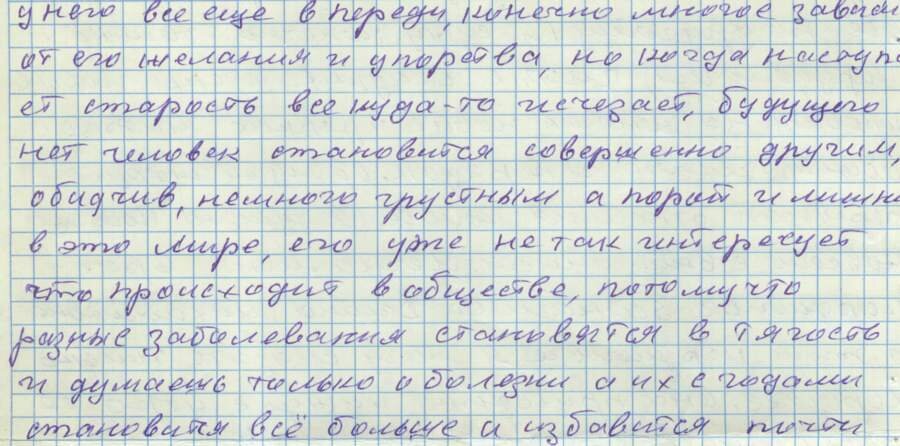 у него все еще в переди, конечно многое зависи
от его желания и упорства, но когда наступа
ет старость все куда-то исчезает, будущего
нет человек становится совершенно другим,
обидчив, немного грустным а порой и лишни
в это мире, его уже не так интересует
что происходит в обществе, потому что
разные заболевания становятся в тягость
и думаешь только о болезни а их с годами
становится всё больше а избавится почти